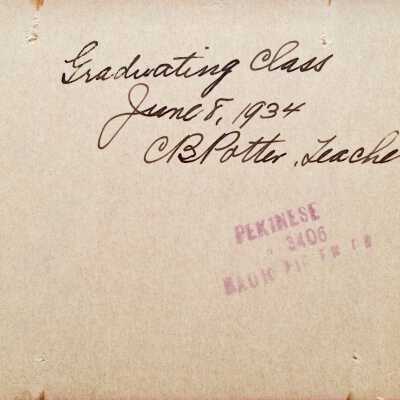 Graduating Class
June 8, 1934
CBPotter, Teache
PEKINESE
3406